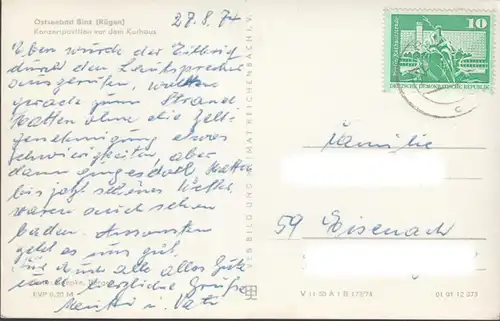 Ostseebad Binz (Rügen)
Konzertpavillon vor dem Kurhaus
27.8.74
Eben wurde der Zeltweg
durch den Lautsprecher
ausgerufen, wollten
gerade zum Strand.
Hatten ohne die Zelt-
genehmigung etwas
Schwierigkeiten, aber
dann ging es doch. Hatten
bis jetzt schönes Wetter,
waren auch schon
baden. Ansonsten
geht es uns gut.
Für Euch alle alles Gute
und herzliche Grüße
Mutti u. Vati
EVP 0,20 M
VEB BILD UND HEIMAT REICHENBACH I. V.
10
DEUTSCHE DEMOKRATISCHE REPUBLIK
Familie
59 Eisenach
V 11 50 A 1 B 173/74
01 01 12 073